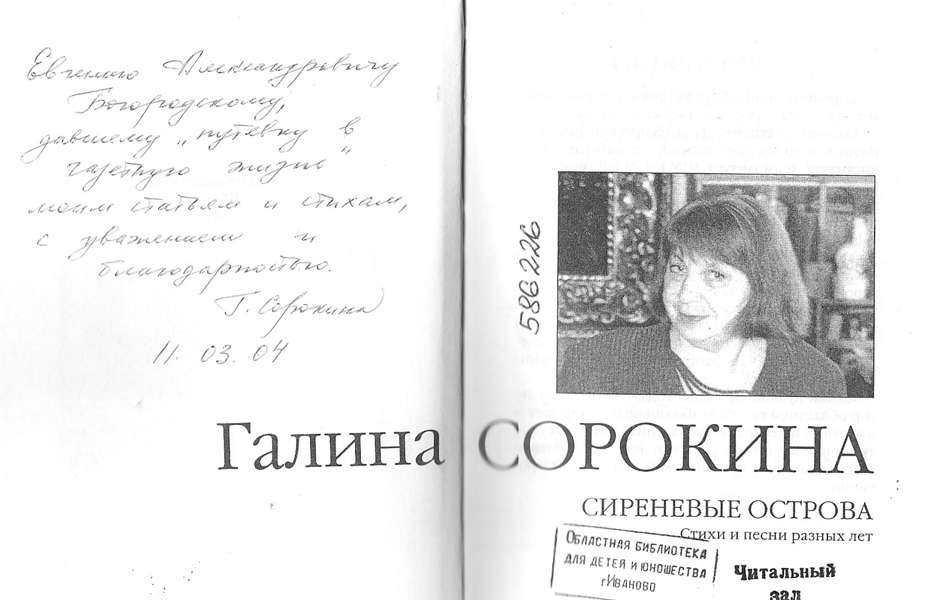 Евгению Александровичу
Богородскому,
давшему „путёвку в
газетную жизнь“
моим статьям и стихам,
с уважением и
благодарностью.
Г. Сорокина
11. 03. 04
586226
Галина СОРОКИНА
СИРЕНЕВЫЕ ОСТРОВА
Стихи и песни разных лет
ОБЛАСТНАЯ БИБЛИОТЕКА
ДЛЯ ДЕТЕЙ И ЮНОШЕСТВА
г.ИВАНОВО
Читальный
зал